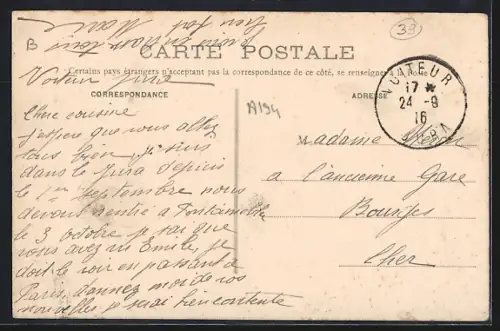 B
39
CARTE POSTALE
Certains pays étrangers n'acceptent pas la correspondance de ce côté, se renseigner à la Poste
CORRESPONDANCE
ADRESSE
A194
VOITEUR
17 *
24 - 9
16
JURA
Voiteur Jura
Chère cousine
J'espère que vous allez
tous bien, je suis
dans le Jura depuis
le 1er Septembre nous
devont rentré a
le 3 octobre je sai que
vous avez vu Emile, je
doit le voir en passant a
Paris, donnez moi de vos
nouvelles je serai bien contente
Madame
a l'ancienne Gare
Bourges
Cher